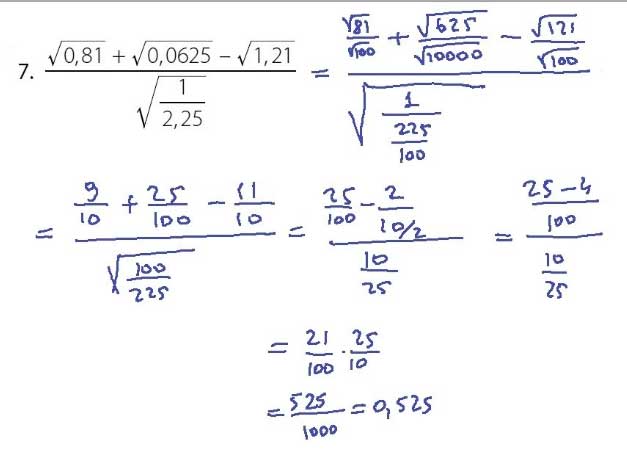 7. (√0,81 + √0,0625 − √1,21) / √(1 / 2,25) = (√81/√100 + √625/√10000 − √121/√100) / √(1 / (225/100))
= (9/10 + 25/100 − 11/10) / √(100/225) = (25/100 − 2/10/2) / (10/25) = ((25−4)/100) / (10/25)
= 21/100 · 25/10
= 525/1000 = 0,525